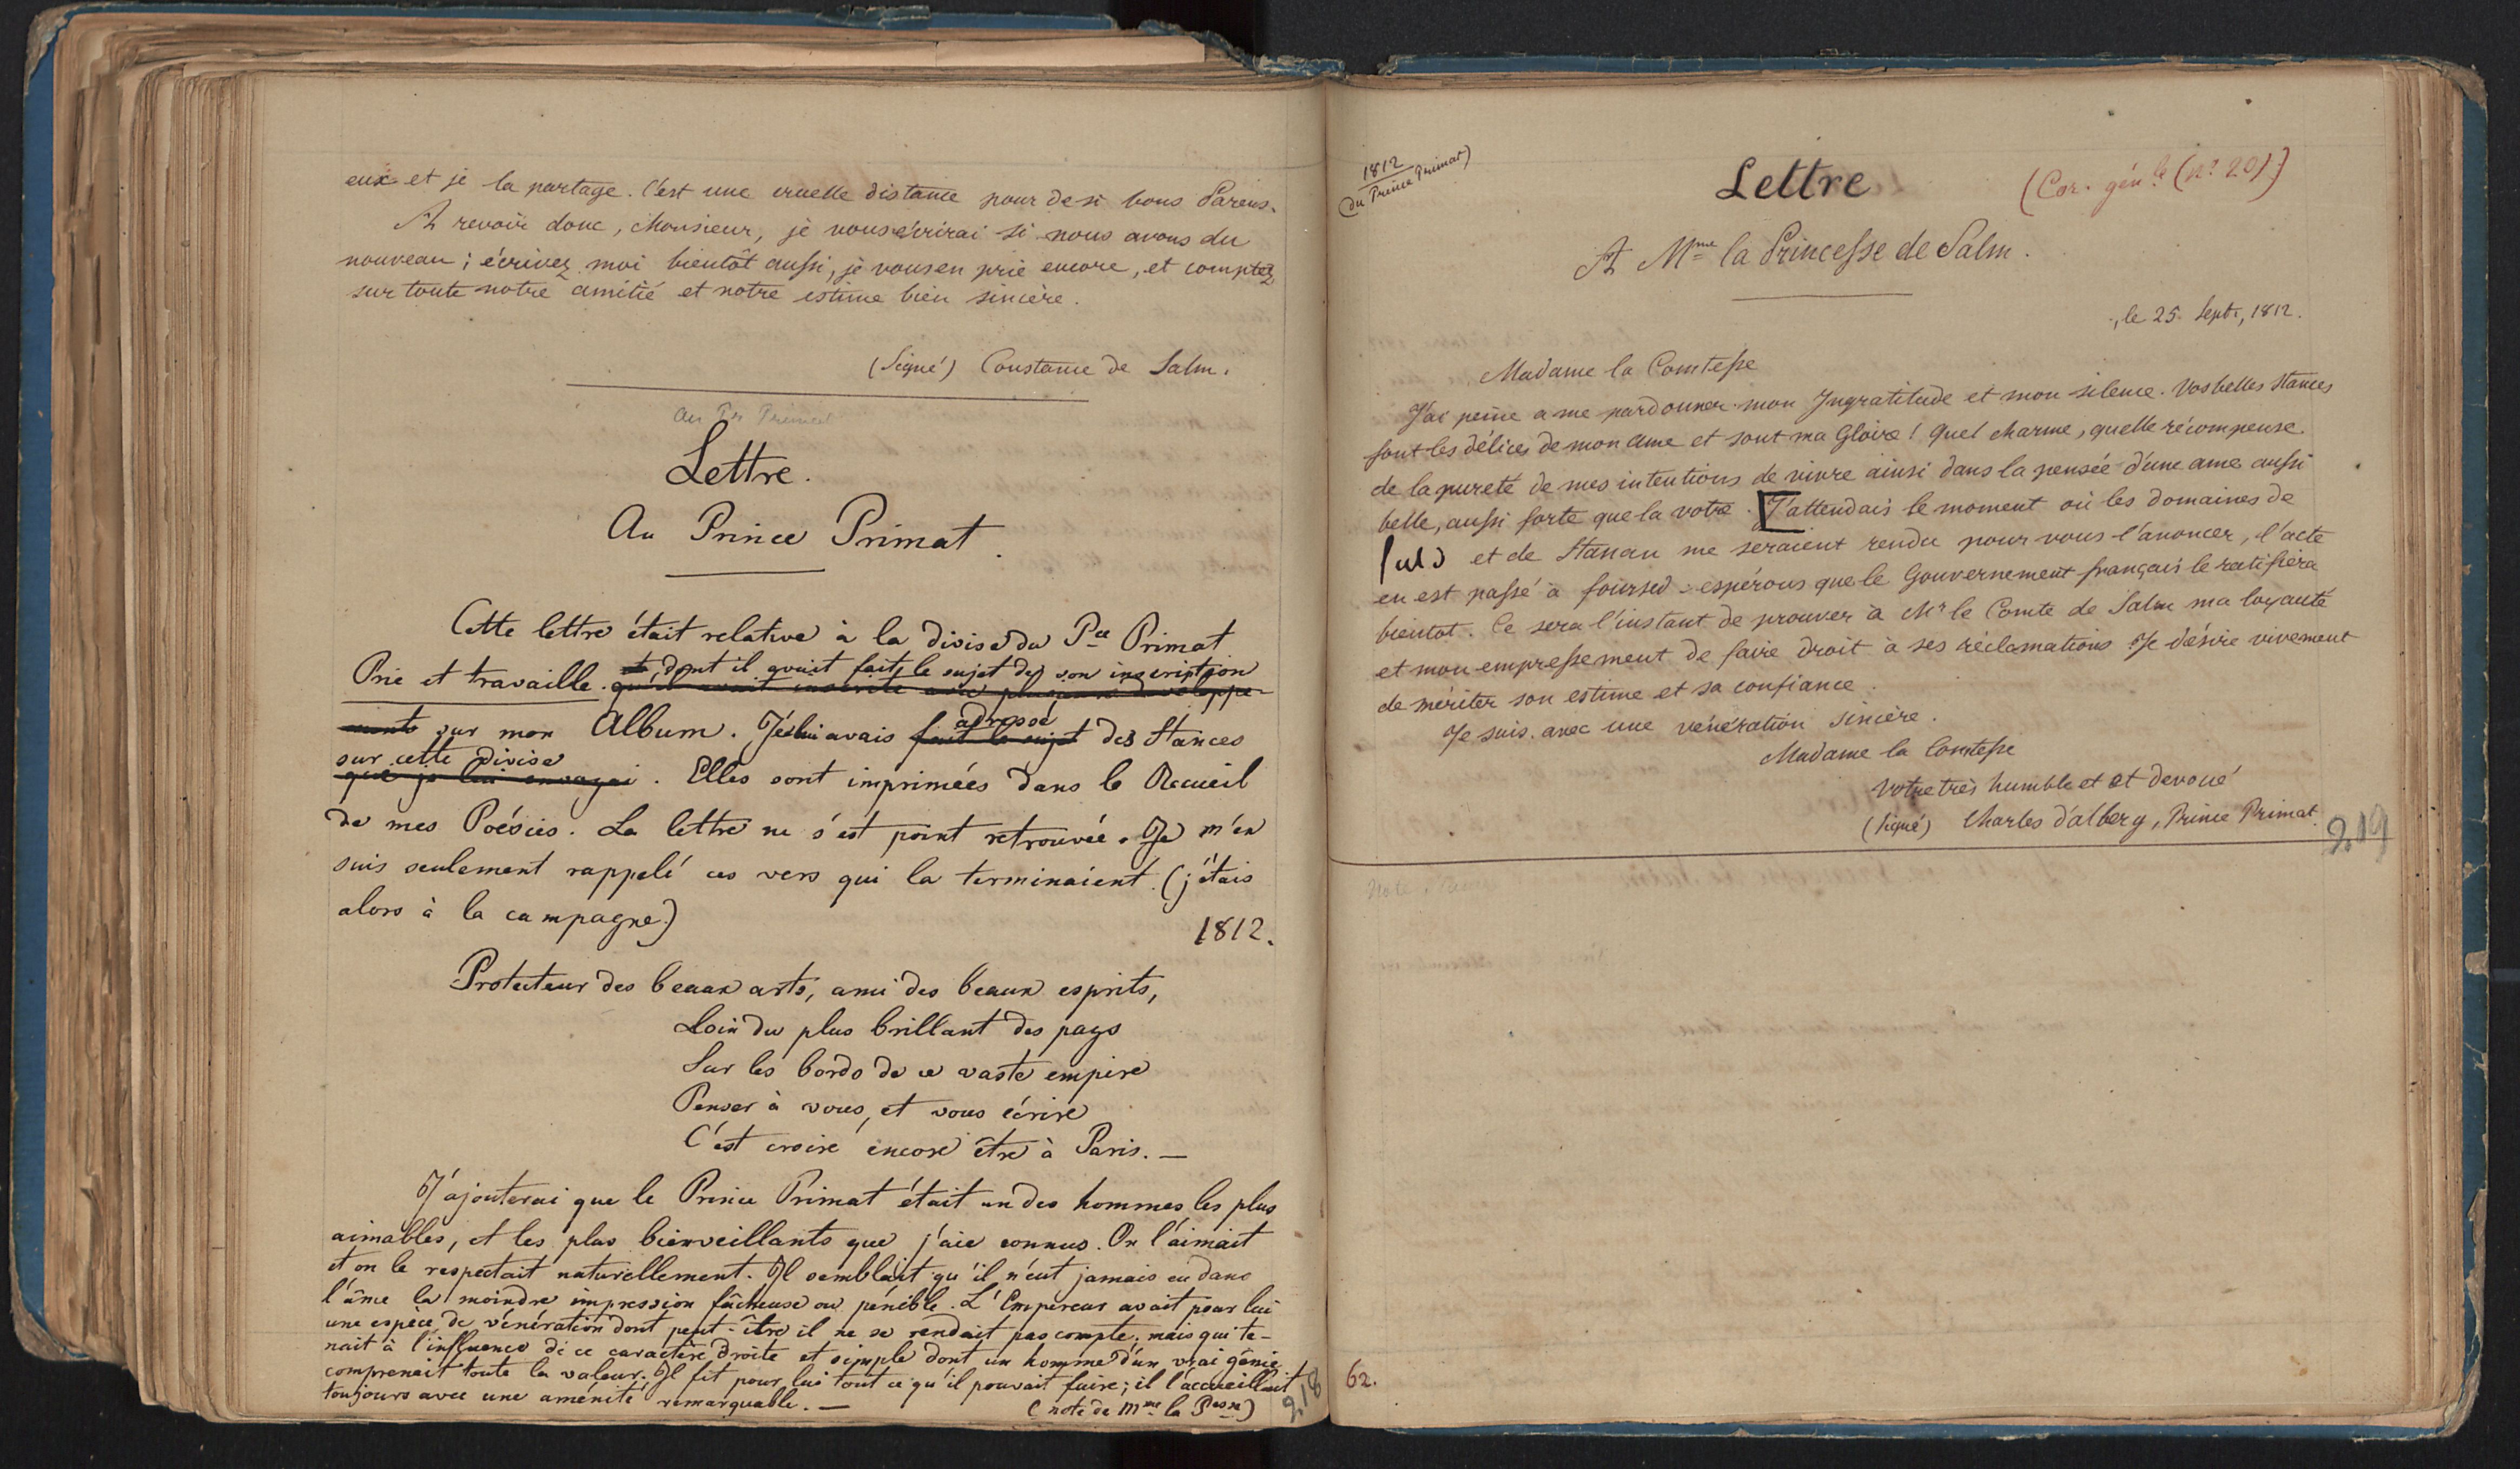 eux et je la partage. C'est une cruelle distance pour de si bons Parens.
A revoir donc, Monsieur, je vous écrirai si nous avons du
nouveau; écrivez moi bientôt aussi, je vous en prie encore, et comptez
sur toute notre amitié et notre estime bien sincère.
(Signé) Constance de Salm.
au Pce Primat
Lettre.
Au Prince Primat.
Cette lettre était relative à la divise du Pce Primat
Prie et travaille. , dont il avait fait le sujet de son inscription
qu'il avait inscrite avec plusieurs développe-
ments sur mon Album. Je lui avais fait le sujet adressé des Stances
sur cette divise
que je lui envoyai. Elles sont imprimées dans le Recueil
de mes Poésies. La lettre ne s'est point retrouvée. Je m'en
suis seulement rappelé ces vers qui la terminaient. (j'étais
alors à la campagne)
1812.
Protecteur des beaux arts, ami des beaux esprits,
Loin du plus brillant des pays
Sur les bords de ce vaste empire
Penser à vous, et vous écrire
C'est croire encore être à Paris. —
J'ajouterai que le Prince Primat était un des hommes les plus
aimables, et les plus bienveillants que j'aie connus. On l'aimait
et on le respectait naturellement. Il semblait qu'il n'eut jamais eu dans
l'âme la moindre impression fâcheuse ou pénible. L'Empereur avait pour lui
une espèce de vénération dont peut-être il ne se rendait pas compte, mais qui te-
nait à l'influence de ce caractère droite et simple dont un homme d'un vrai génie
comprenait toute la valeur. Il fit pour lui tout ce qu'il pouvait faire; il l'accueillait
toujours avec une aménité remarquable. —
(note de Mme la Pesse)
218
1812
(du Prince Primat)
Lettre
(Cor. génle (nº 20))
A Mme la Princesse de Salm.
, le 25. Sept., 1812.
Madame la Comtesse
J'ai peine a me pardonner mon Ingratitude et mon silence. Vos belles stances
font les délices de mon ame et sont ma Gloire! Quel charme, quelle récompense
de la pureté de mes intentions de vivre ainsi dans la pensée d'une ame aussi
belle, aussi forte que la votre. J'attendais le moment où les domaines de
et de Hanau me seraient rendu pour vous l'anoncer, l'acte
en est passé à espérons que le Gouvernement français le ratifiera
bientot. Ce sera l'instant de prouver à Mr le Comte de Salm ma loyauté
et mon empressement de faire droit à ses réclamations. Je désire vivement
de mériter son estime et sa confiance.
Je suis avec une vénération sincère.
Madame la Comtesse
Votre très humble et et devoué
(Signé) Charles d'alberg, Prince Primat.
219
62.